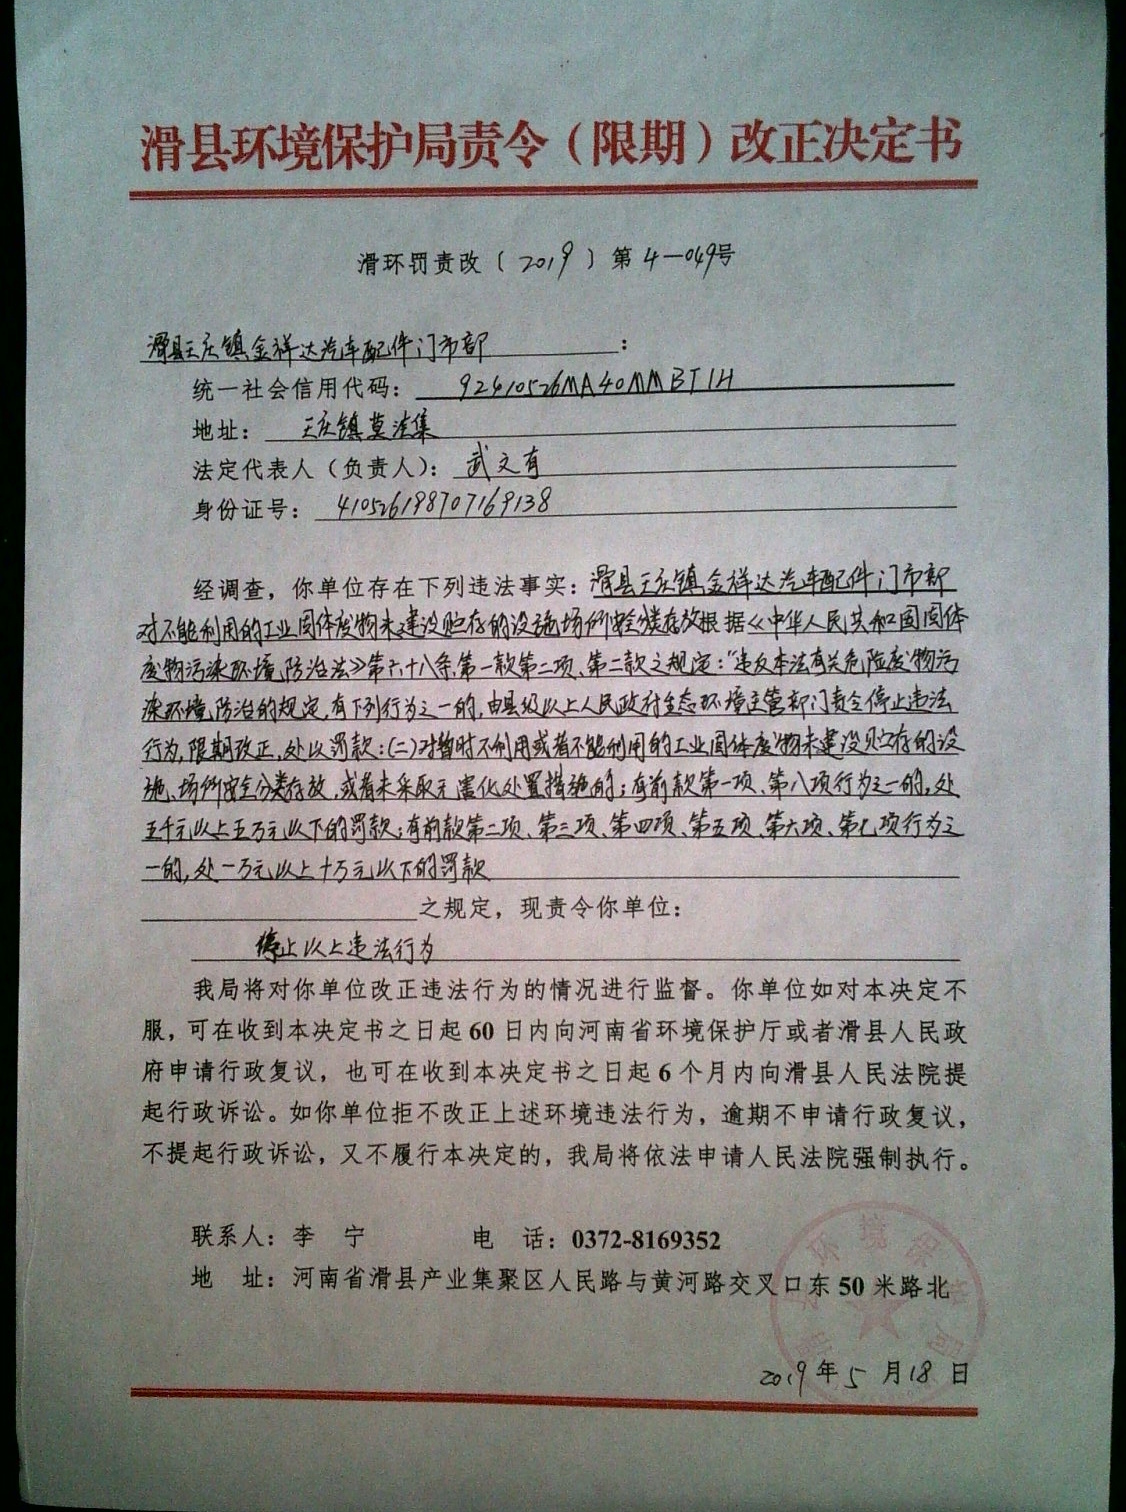 滑县环境保护局责令（限期）改正决定书
滑环罚责改〔2019〕第4—049号
滑县王庄镇金祥达汽车配件门市部：
统一社会信用代码：92410526MA40MMBT1H
地址：王庄镇莫洼集
法定代表人（负责人）：武文有
身份证号：410526198707169138
经调查，你单位存在下列违法事实：滑县王庄镇金祥达汽车配件门市部
对不能利用的工业固体废物未建设贮存的设施场所安全分类存放根据《中华人民共和国固体
废物污染环境防治法》第六十八条第一款第二项、第二款之规定："违反本法有关危险废物污
染环境防治的规定，有下列行为之一的，由县级以上人民政府生态环境主管部门责令停止违法
行为，限期改正，处以罚款：（二）对暂时不利用或者不能利用的工业固体废物未建设贮存的设
施、场所安全分类存放，或者未采取无害化处置措施的；有前款第一项、第八项行为之一的，处
五千元以上五万元以下的罚款；有前款第二项、第三项、第四项、第五项、第六项、第七项行为之
一的，处一万元以上十万元以下的罚款
之规定，现责令你单位：
停止以上违法行为
我局将对你单位改正违法行为的情况进行监督。你单位如对本决定不
服，可在收到本决定书之日起60日内向河南省环境保护厅或者滑县人民政
府申请行政复议，也可在收到本决定书之日起6个月内向滑县人民法院提
起行政诉讼。如你单位拒不改正上述环境违法行为，逾期不申请行政复议，
不提起行政诉讼，又不履行本决定的，我局将依法申请人民法院强制执行。
联系人：李 宁 电 话：0372-8169352
地 址：河南省滑县产业集聚区人民路与黄河路交叉口东50米路北
滑县环境保护局
2019年5月18日